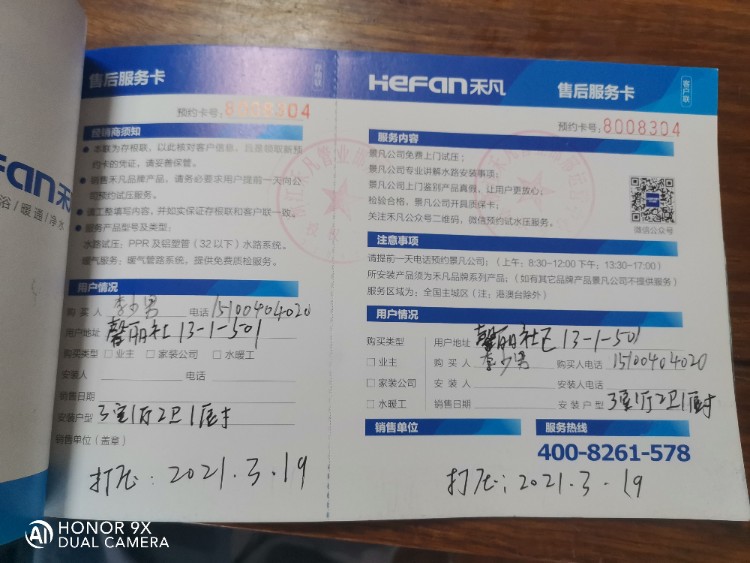 售后服务卡
存根联
预约卡号: 8008304
经销商须知
本联为存根联,以此核对客户信息,
约卡的凭证,请妥善保管。
销售禾凡品牌产品,请务必要求用户提前一天向公
司预约试压服务。
请工整填写内容,并如实保证存根联和客户联一致。
服务产品型号及类型:
水路试压:PPR 及铝塑管(32以下)水路系统。
暖气服务:暖气管路系统,提供免费质检服务。
用户情况
购 买 人 李少男 电话 15100404020
用户地址 馨丽社 13-1-501
购买类型 □ 业主 □ 家装公司 □ 水暖工
安装人 电话
销售日期
安装户型 3室1厅2卫1厨
销售单位(盖章)
打压:2021.3.19
HeFan禾凡
售后服务卡
客户联
预约卡号: 8008304
服务内容
景凡公司免费上门试压;
景凡公司专业讲解水路安装事项;
景凡公司上门鉴别产品真假,让用户更放心;
检验合格,景凡公司开具质保卡;
关注禾凡公众号二维码,微信预约试水压服务。
微信公众号
注意事项
请提前一天电话预约景凡公司;(上午:8:30-12:00 下午:13:30-17:00)
所安装产品须为禾凡品牌系列产品;(如有其它品牌产品景凡公司不提供服务)
服务区域为:全国主城区(注:港澳台除外)
用户情况
购买类型 用户地址 馨丽社区 13-1-501
□ 业主 购 买 人 李少男 购买人电话 15100404020
□ 家装公司 安 装 人 安装人电话
□ 水暖工 销售日期 安 装 户 型 3室1厅2卫1厨
销售单位 服务热线
400-8261-578
打压:2021.3.19
efan禾
浴/暖通/净水
HONOR 9X
DUAL CAMERA